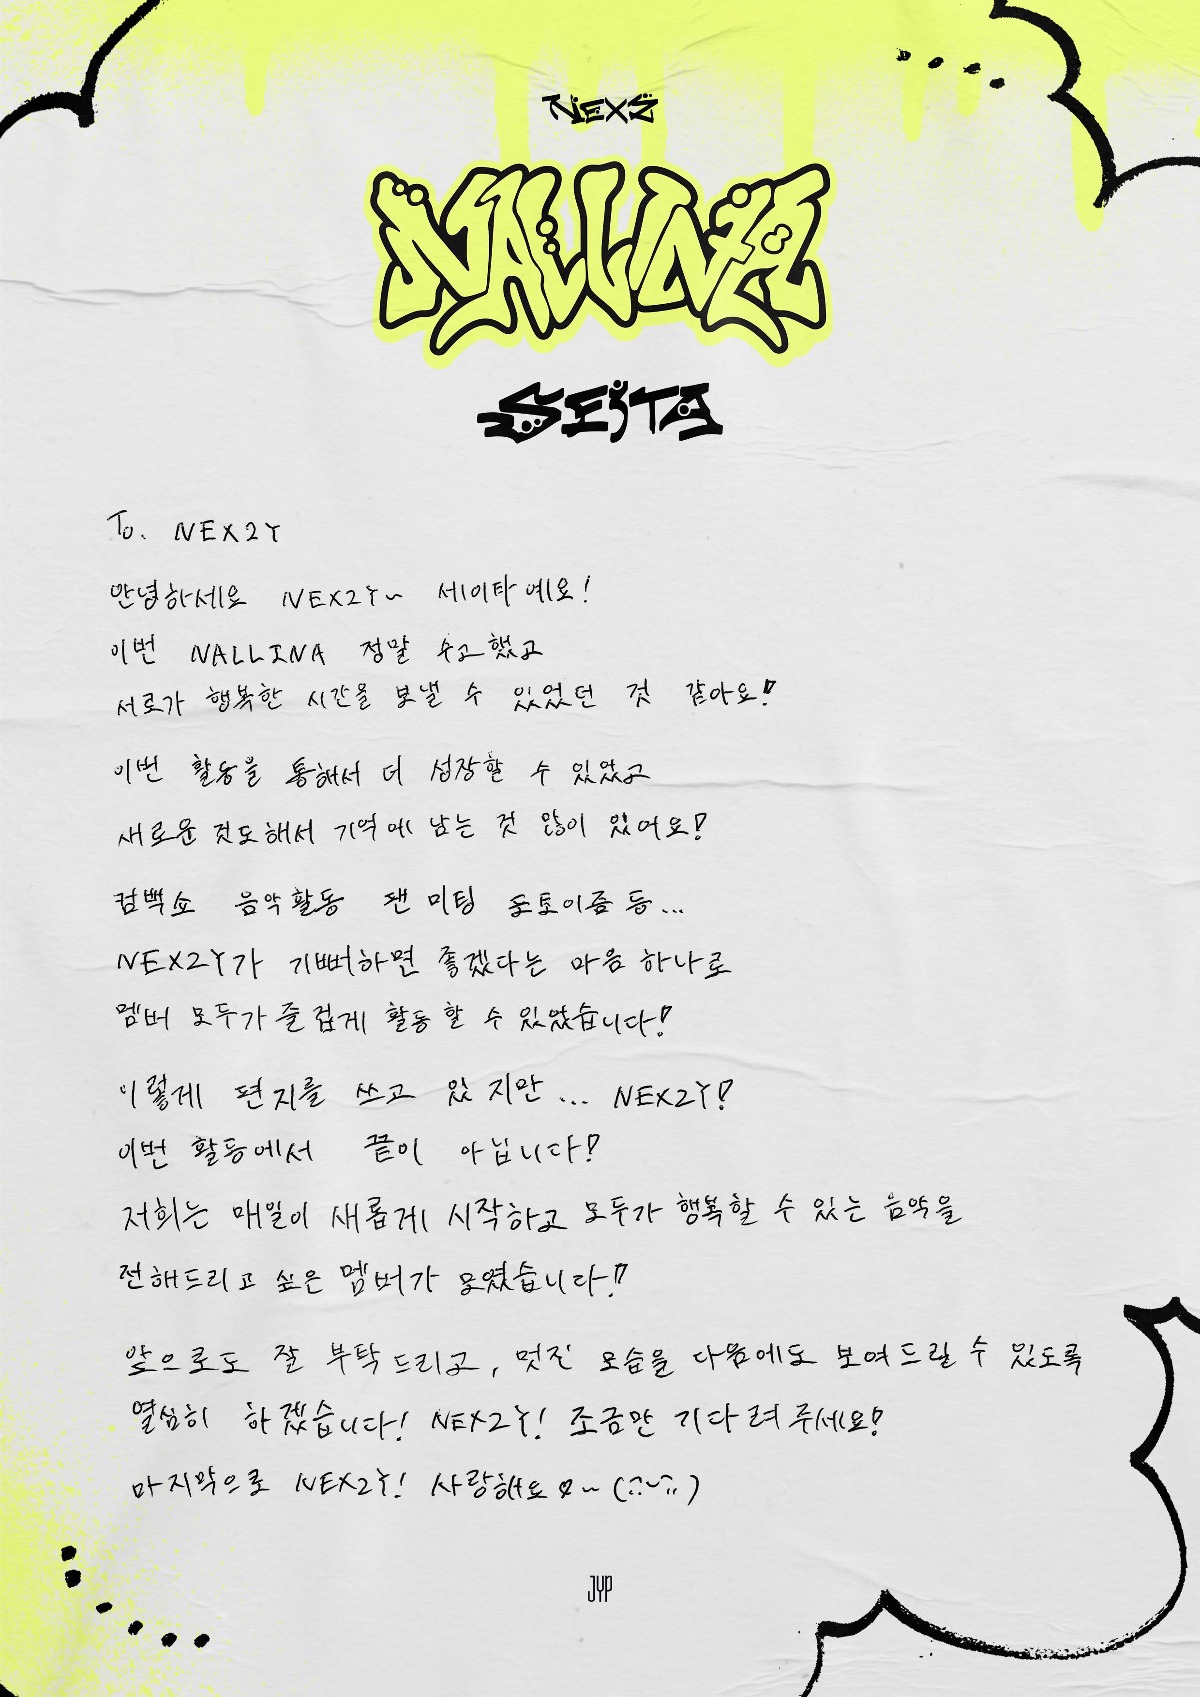 NEXZ
NALLINA
SEITA
To. NEX2Y
안녕하세요 NEX2Y~ 세이타예요!
이번 NALLINA 정말 수고했고
서로가 행복한 시간을 보낼 수 있었던 것 같아요!
이번 활동을 통해서 더 성장할 수 있었고
새로운 것도 해서 기억에 남는 것 많이 있어요!
컴빽쇼 음악활동 팬미팅 오토이즘 등...
NEX2Y가 기뻐하면 좋겠다는 마음 하나로
멤버 모두가 즐겁게 활동할 수 있었습니다!
이렇게 편지를 쓰고 있지만... NEX2Y!
이번 활동에서 끝이 아닙니다!
저희는 매일이 새롭게 시작하고 모두가 행복할 수 있는 음악을
전해드리고 싶은 멤버가 모였습니다!
앞으로도 잘 부탁드리고, 멋진 모습을 다음에도 보여드릴 수 있도록
열심히 하겠습니다! NEX2Y! 조금만 기다려주세요!
마지막으로 NEX2Y! 사랑해요~
JYP